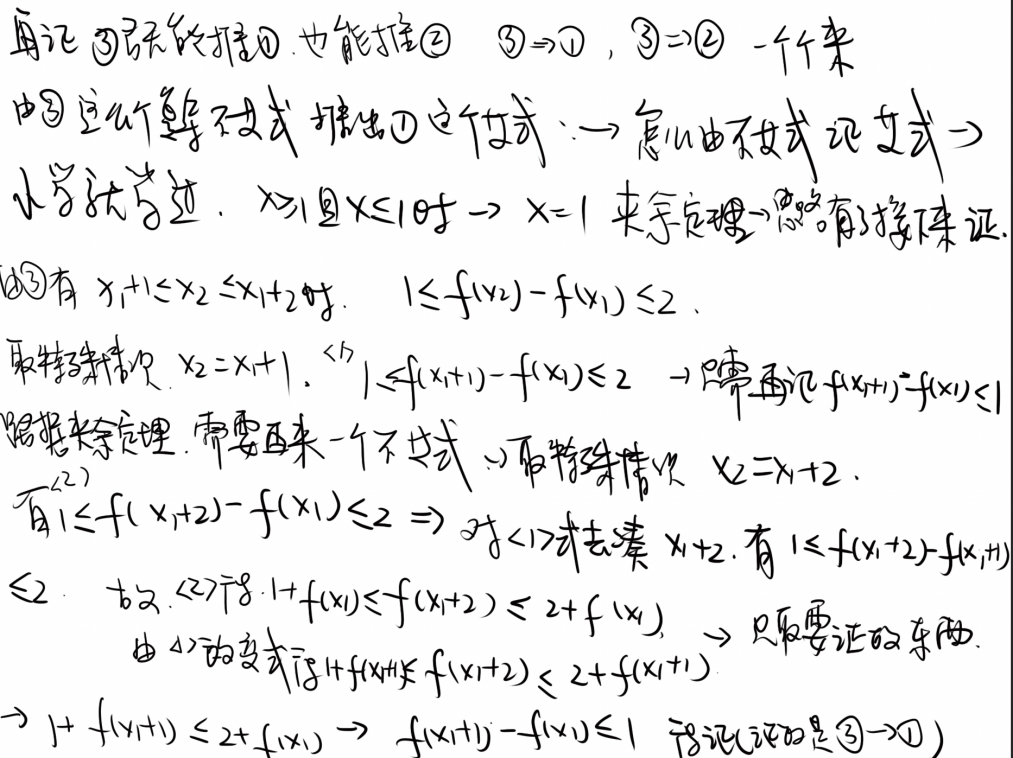 再证 ③既能推① 也能推② ③⇒①, ③⇒② 一个个来
由③这个复杂不等式 推出①这个等式 ∴→ 怎么由不等式证等式→
小学就学过. x≥1且x≤1时 → x=1 夹逼定理→思路有了接下来证.
由③有 x₁+1≤x₂≤x₁+2时. 1≤f(x₂)-f(x₁)≤2.
取特殊情况 x₂=x₁+1. <1> 1≤f(x₁+1)-f(x₁)≤2 →只需再证 f(x₁+1)-f(x₁)≤1
根据夹逼定理. 需要再来一个不等式 ∴取特殊情况 x₂=x₁+2.
有<2> 1≤f(x₁+2)-f(x₁)≤2 ⇒ 对<1>式去凑 x₁+2. 有 1≤f(x₁+2)-f(x₁+1)
≤2. 故.<2>得.1+f(x₁)≤f(x₁+2)≤2+f(x₁)
由<1>的变式得1+f(x₁+1)≤f(x₁+2)≤2+f(x₁+1) → 只取要证的东西.
→ 1+f(x₁+1)≤2+f(x₁) → f(x₁+1)-f(x₁)≤1 得证(证的是③→①)